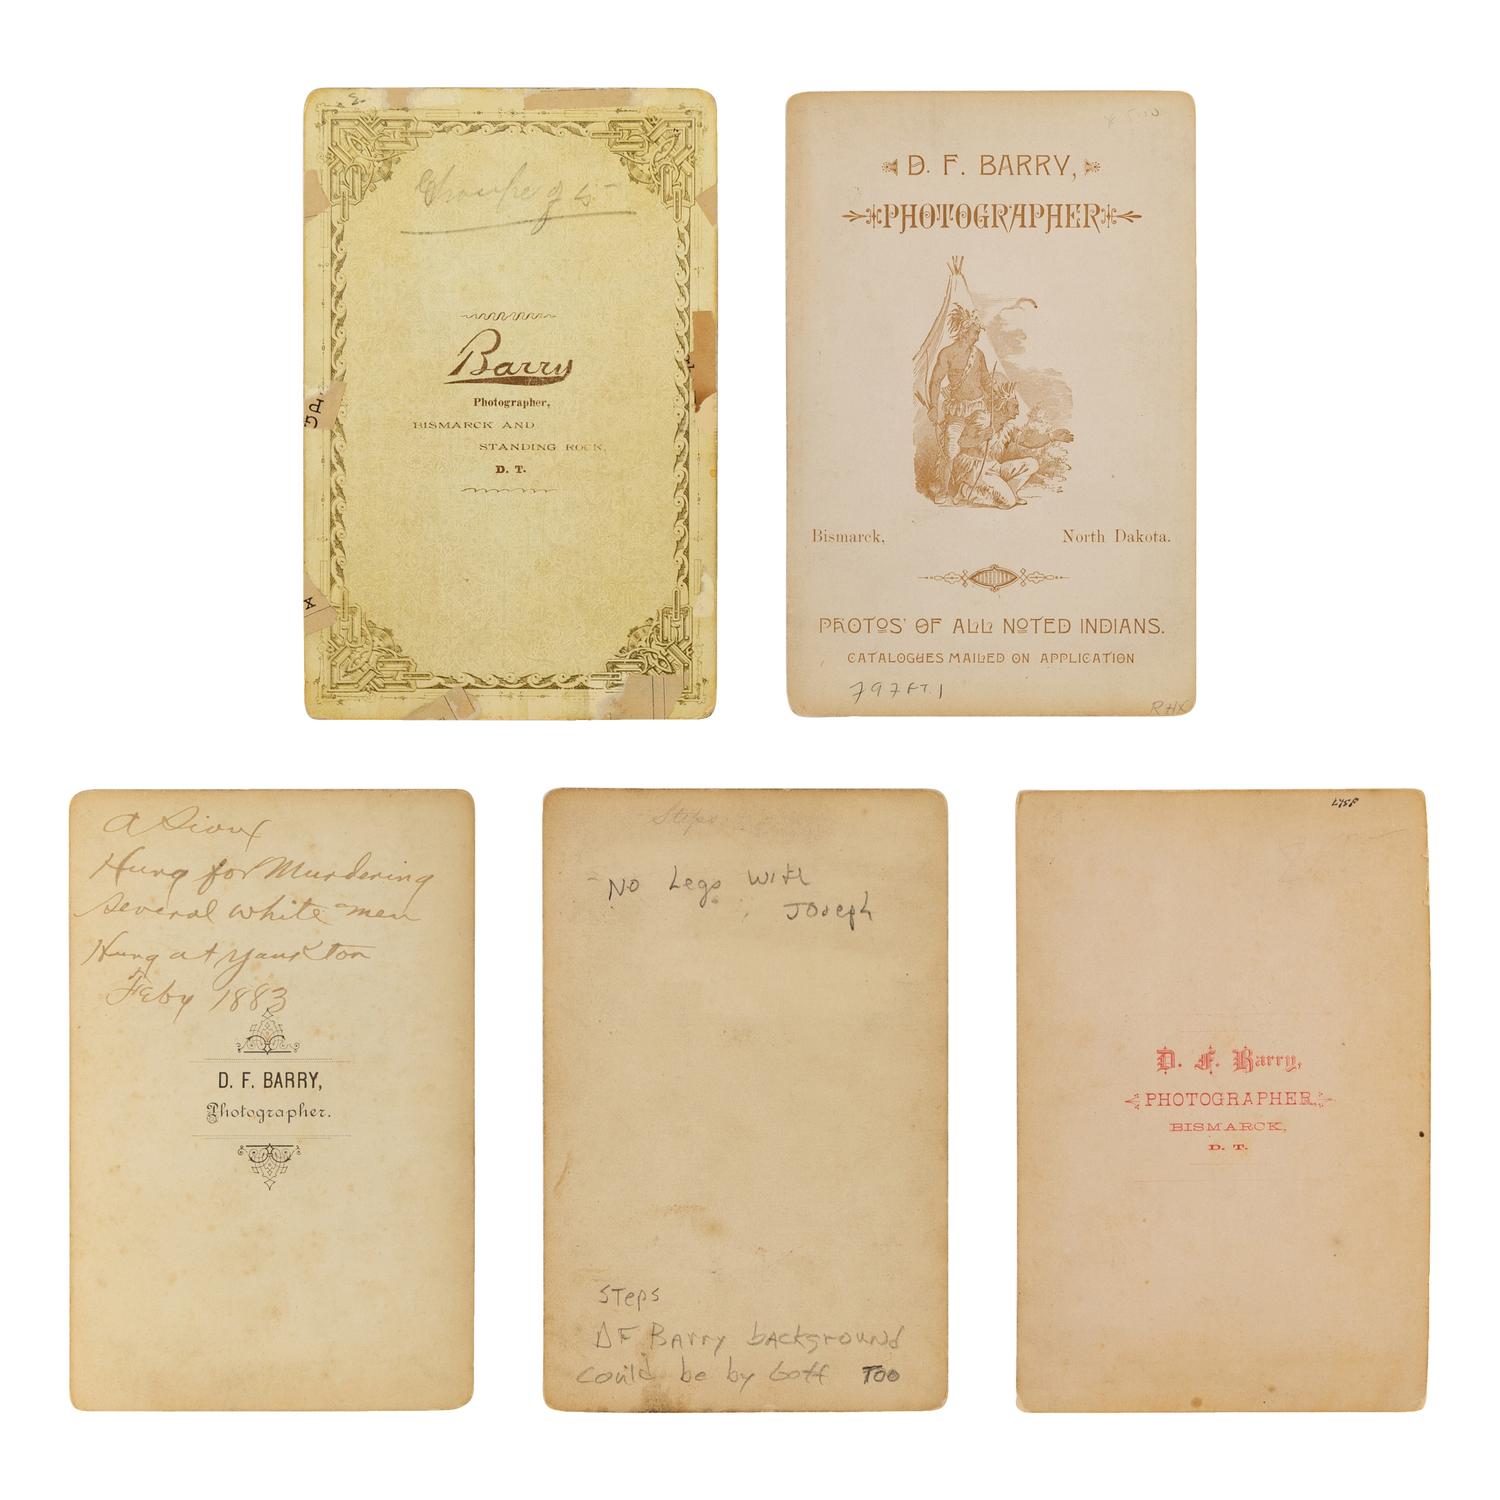 of 5
Barry
Photographer,
BISMARCK AND
STANDING ROCK,
D. T.
D. F. BARRY,
PHOTOGRAPHER
Bismarck, North Dakota.
PHOTOS' OF ALL NOTED INDIANS.
CATALOGUES MAILED ON APPLICATION
797FT.1
RHX
a Sioux
Hung for Murdering
several white men
Hung at Yankton
Feby 1883
D. F. BARRY,
Photographer.
Steps
No Legs with
Joseph
Steps
DF Barry background
could be by Goff Too
D. F. Barry,
PHOTOGRAPHER,
BISMARCK,
D. T.